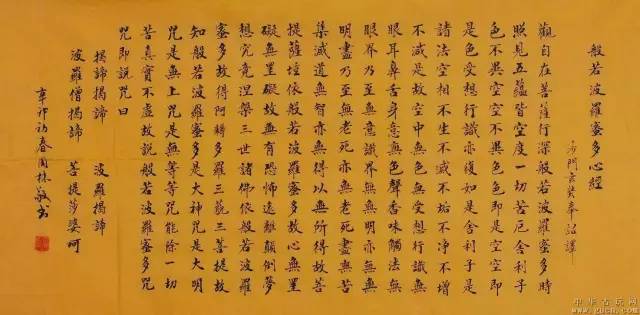 般若波羅蜜多心經
沙門玄奘奉詔譯
觀自在菩薩行深般若波羅蜜多時
照見五蘊皆空度一切苦厄舍利子
色不異空空不異色色即是空空即
是色受想行識亦復如是舍利子是
諸法空相不生不滅不垢不淨不增
不減是故空中無色無受想行識無
眼耳鼻舌身意無色聲香味觸法無
眼界乃至無意識界無無明亦無無
明盡乃至無老死亦無老死盡無苦
集滅道無智亦無得以無所得故菩
提薩埵依般若波羅蜜多故心無罣
礙無罣礙故無有恐怖遠離顛倒夢
想究竟涅槃三世諸佛依般若波羅
蜜多故得阿耨多羅三藐三菩提故
知般若波羅蜜多是大神咒是大明
咒是無上咒是無等等咒能除一切
苦真實不虛故說般若波羅蜜多咒
咒即說咒曰
揭諦揭諦 波羅揭諦
波羅僧揭諦 菩提莎婆呵
辛卯初春周林敬書
中华古玩网
www.yucn.com